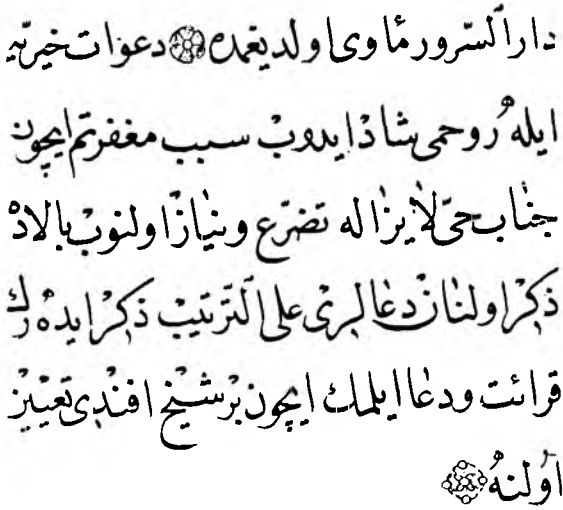 دار السّرور مأوى اولديغمده ۞ دعوات خيريّه
ايله روحمى شاد ايدوب سبب مغفرتم ايچون
جناب حىّ لايزاله تضرّع ونياز اولنوب بالاده
ذكر اولنان دعالرى على التّرتيب ذكر ايدهرك
قرائت ودعا ايلمك ايچون بر شيخ افندى تعيين
اولنه ۞